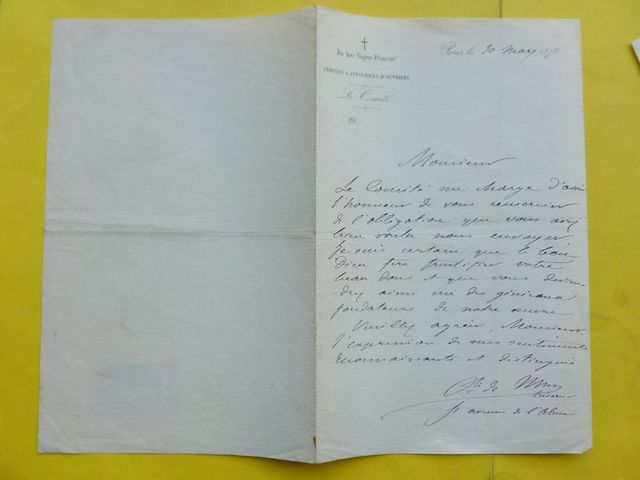 In hoc Signo Vinces!
CERCLES CATHOLIQUES D'OUVRIERS
Le Comité
Paris, le 30 mars 187
Monsieur
Le Comité me charge d'avoir
l'honneur de vous remercier
de l'obligation que vous avez
bien voulu nous envoyer
Je suis certain que le bon
Dieu fera fructifier votre
beau don et que vous devien-
drez ainsi un des généreux
fondateurs de notre œuvre
Veuillez agréer, Monsieur
l'expression de mes sentiments
reconnaissants et distingués
de Mun
avenue de l'Alma